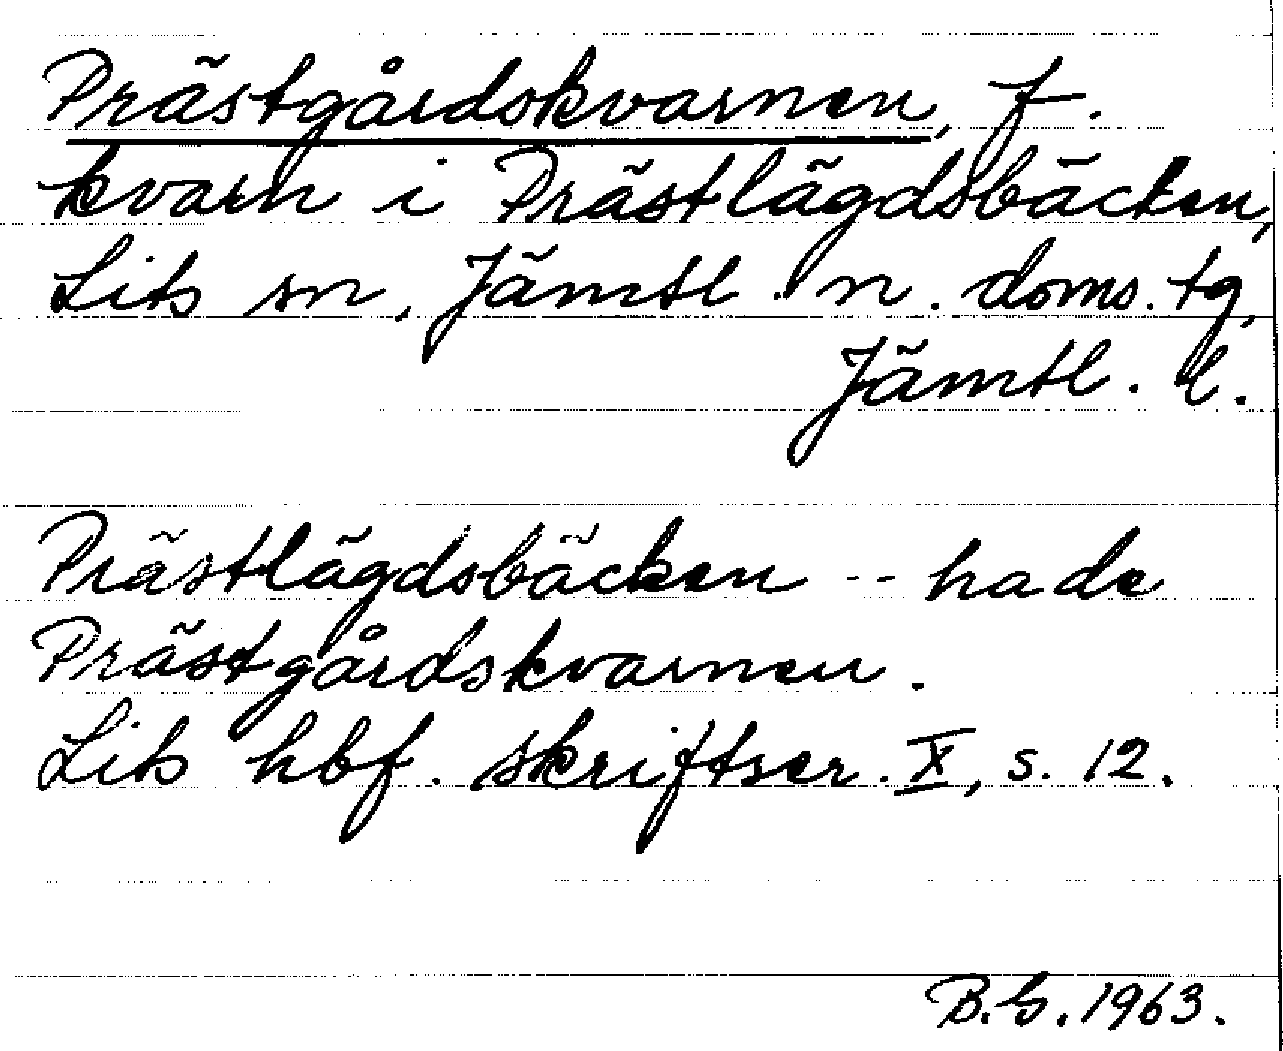 Prästgårdskvarnen, f.
kvarn i Prästlägdsbäcken,
Lits sn, Jämtl. n. doms. tg,
Jämtl. l.
Prästlägdsbäcken -- hade
Prästgårdskvarnen.
Lits hbf. skriftser. X, s. 12.
B.G. 1963.